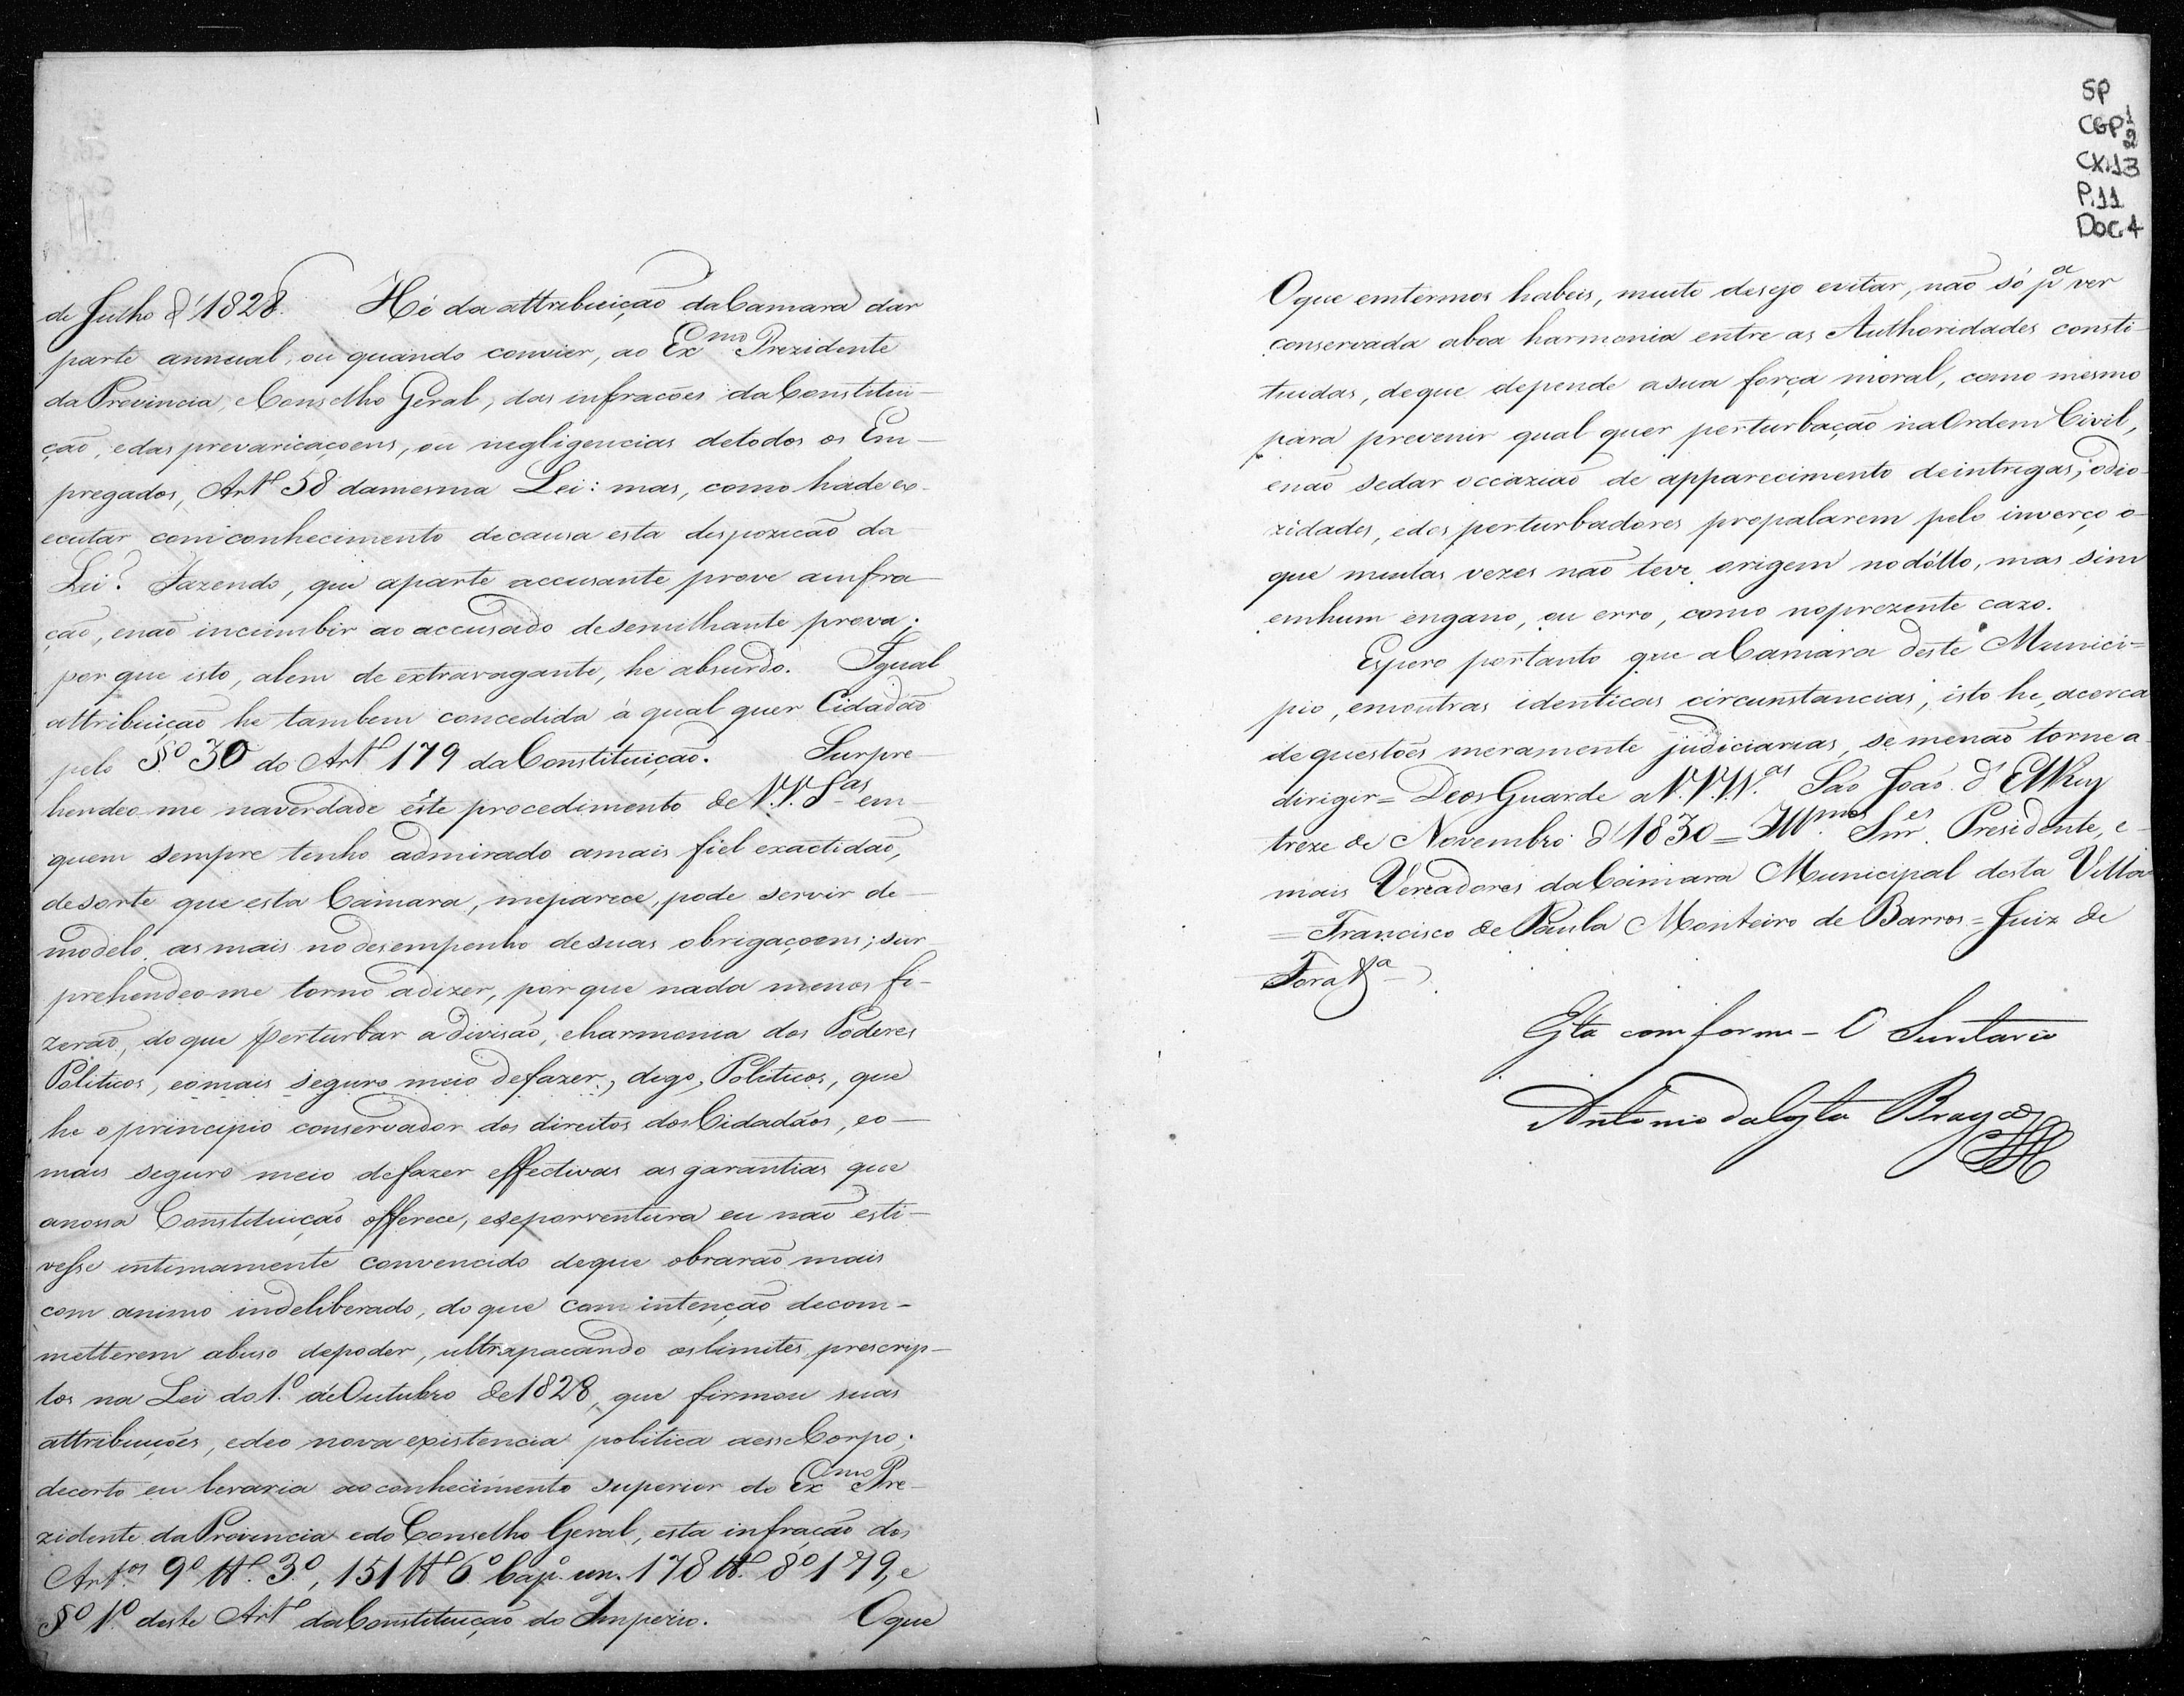 de Julho d'1828. Hé da attribuição da Camara dar
parte annual, ou quando convier, ao Exmo Prezidente
da Provincia, e Conselho Geral, das infracoẽs da Constitui-
ção, e das prevaricaçoens, ou negligencias detodos os Em-
pregados, Arto 58 damesma Lei: mas, como hade ex-
ecutar com conhecimento decausa esta despozição da
Lei? Fazendo, que aparte accusante prove ainfra-
ção, enaõ incumbir ao accusado desemilhante prova;
por que isto, alem de extravagante, he absurdo. Igual
attribuição he tambem concedida á qual quer Cidadão
pelo §º 30 do Arto 179 da Constituição. Surpre-
hendeo-me naverdade este procedimento de V.V. Sas em
quem sempre tenho admirado amais fiel exactidaõ,
desorte que esta Camara, meparece, pode servir de
modelo as mais no desempenho desuas obrigaçoens; sur
prehendeo-me torno adizer, por que nada menos fi-
zeraõ, do que perturbar a divisaõ, eharmonia dos Poderes
Politicos, eomais seguro meio defazer, digo, Politicos, que
he o principio conservador dos direitos dos Cidadãos, eo-
mais seguro meio defazer effectivas as garantias que
anossa Constituição offerece, eseporventura eu naõ esti-
vesse intimamente convencido deque obraraõ mais
com animo indeliberado, do que com intenção decom-
metterem abuso depoder, ultrapaçando os limites prescrip-
tos na Lei do 1.º de Outubro de 1828, que firmou suas
attribuições, edeo nova existencia politica aesse Corpo;
decerto eu levaria ao conhecimento superior do Exmo Pre-
zidente da Provincia edo Conselho Geral, esta infração dos
Artos 9º ttº 3º, 151 ttº 6º Capº un. 178 ttº 8º 179, e
§º 1º deste Arto da Constituição do Imperio. Oque
SP
CGP 1
2
CX.13
P.11
Doc.4
Oque emtermos habeis, muito desejo evitar, naõ só pa ver
conservada aboa harmonia entre as Authoridades consti-
tuidas, deque depende asua força moral, como mesmo
para prevenir qual quer perturbação na Ordem Civil,
enaõ sedar occaziaõ de apparecimento deintrigas, odio-
zidades, edos perturbadores propalarem pelo inverço o-
que muitas vezes naõ teve origem nodólto, mas sim
emhum engano, ou erro, como noprezente cazo.
Espero portanto que aCamara deste Munici=
pio, emoutras identicas circunstancias, isto he, acerca
dequestoẽs meramente judiciarias, se menaõ torne a
dirigir= Deos Guarde a V.V. São Joaõ d'ElRey
treze de Novembro d'1830= Illmos Snres Presidente, e
mais Vereadores da Camara Municipal desta Villa
= Francisco de Paula Monteiro de Barros= Juiz de
Fora
Está comforme - O Secretario
Antonio da Costa Braga